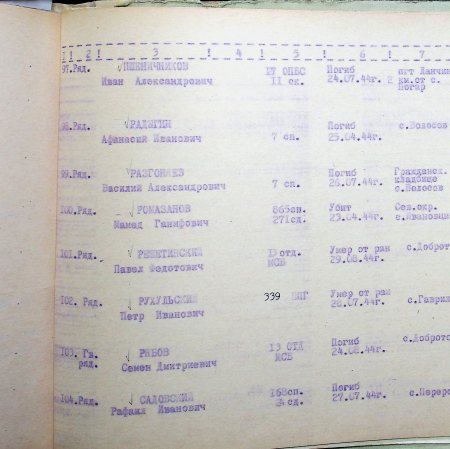 1 2 3 4 5 6 7
97.Ряд. ПШЕНИЧНИКОВ 17 ОПБС Погиб пгт Ланчин
Иван Александрович 11 ск. 24.07.44г. 2 км.ст с.
Погар
98.Ряд. РАДЫГИН Погиб с.Волосов
Афанасий Иванович 7 сп. 25.04.44г.
99.Ряд. РАЗГОНЯЕВ Погиб Гражданск.
Василий Александрович 7 сп. 26.07.44г. кладбище
с.Волосов
100.Ряд. РОМАЗАНОВ 865сп. Убит Сев.окр.
Мамед Ганифович 271сд. 23.04.44г. с.Ивановци
101.Ряд. РЕШЕТИНСКИЙ отд. Умер от ран с.Доброт
Павел Федотович МСБ 29.08.44г.
102. Ряд. РУХУЛЬСКИЙ 339 Умер от ран с.Гаврил
Петр Иванович 28.07.44г.
103. Гв. РЯБОВ 13 ОТД Погиб с.Добротов
ряд. Семен Дмитриевич МСБ 24.08.44г.
104.Ряд. САДОВСКИЙ 168сп. Погиб с.Перерос
Рафаил Иванович сд. 27.07.44г.